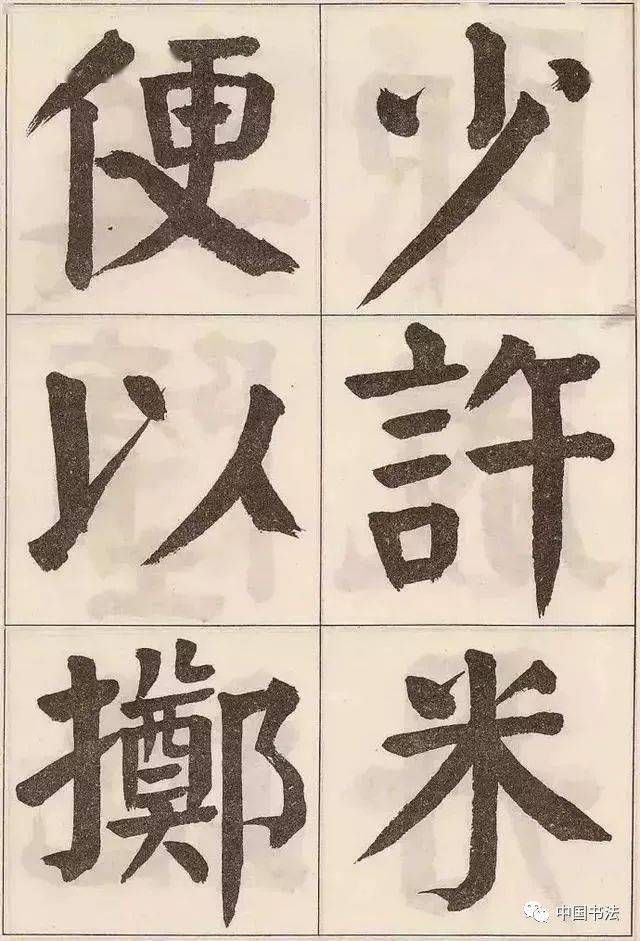 少許米
便以擲
中国书法